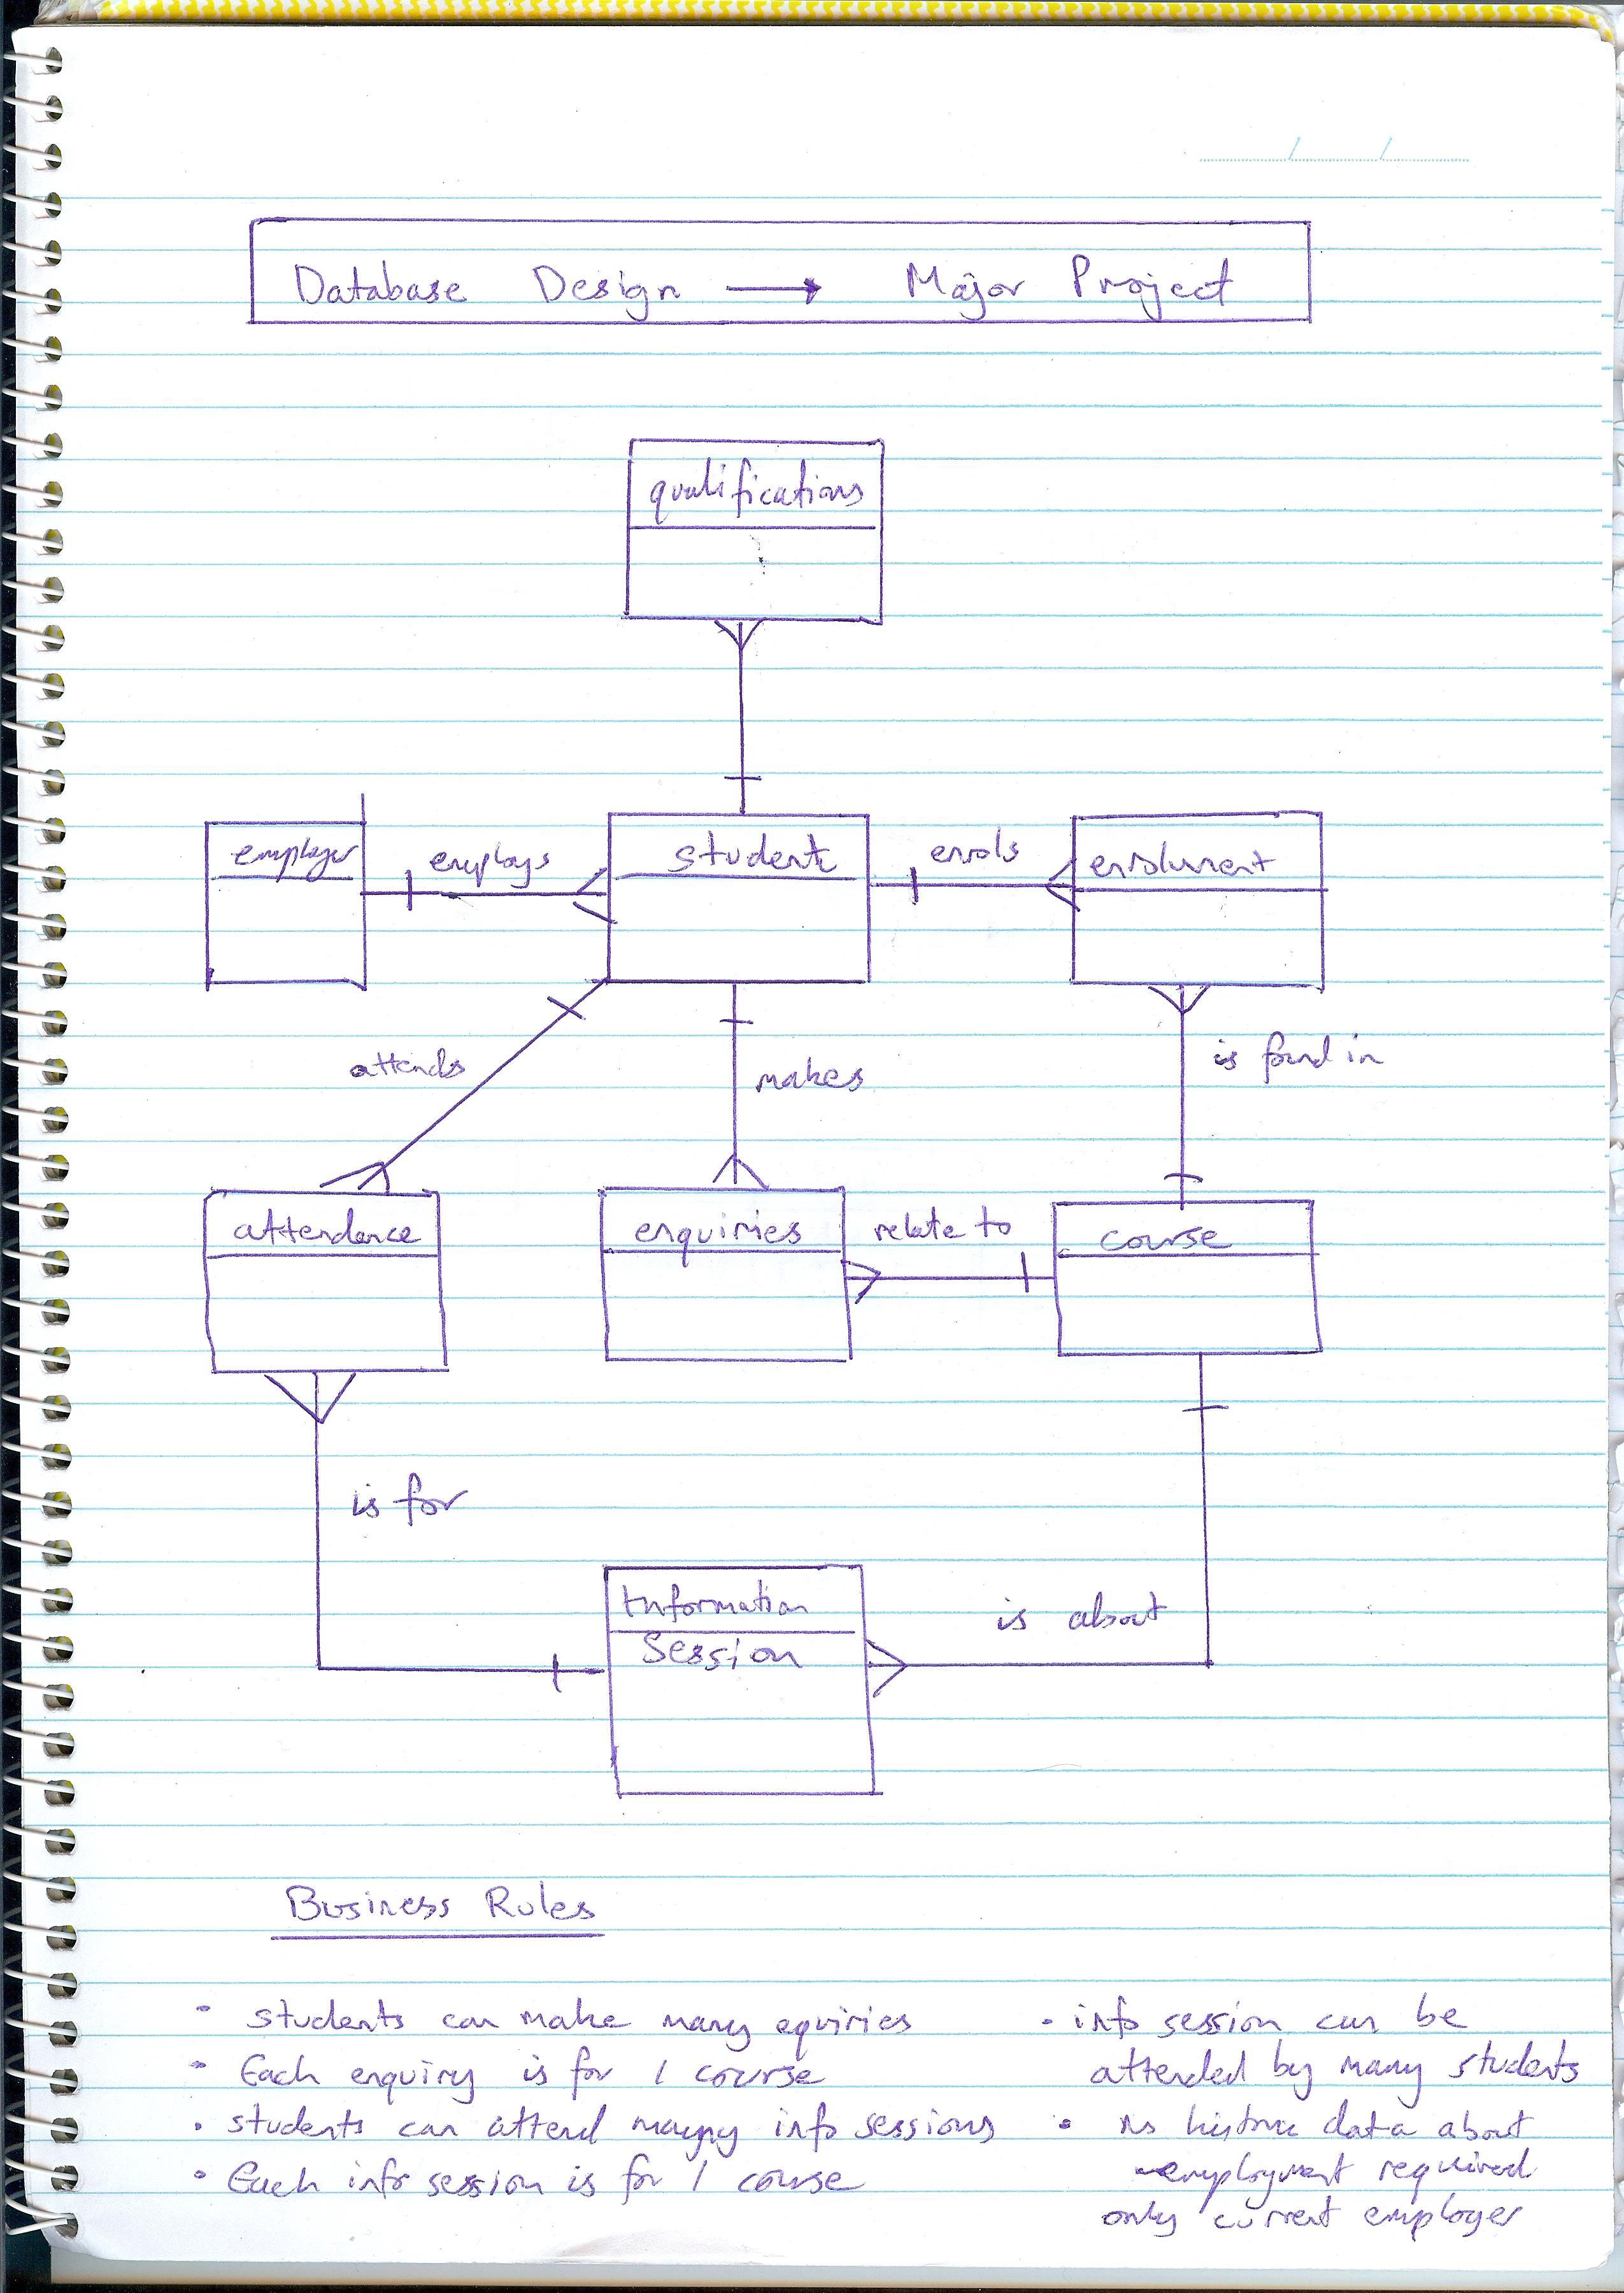 Database Design → Major Project
qualifications
employer
employs
student
enrols
enrolment
attends
makes
is found in
attendance
enquiries
relate to
course
is for
Information
Session
is about
Business Rules
• students can make many equiries
• Each enquiry is for 1 course
• students can attend maypy info sessions
• Each info session is for 1 course
• info session can be
attended by many students
• no historic data about
employment required
only current employer